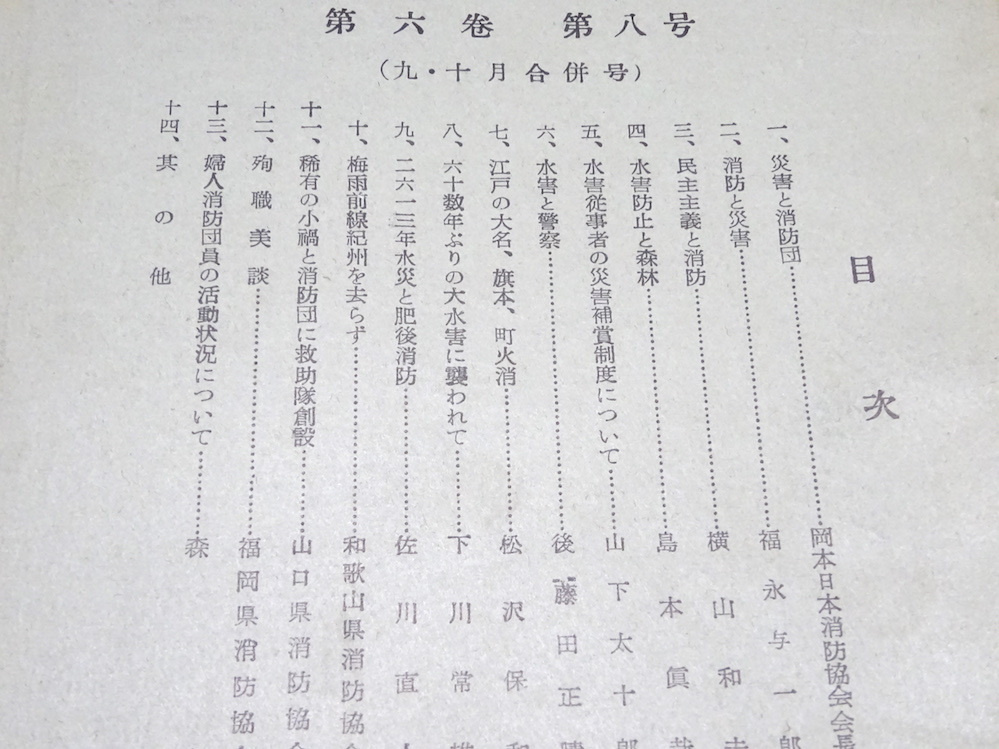 第六巻 第八号
(九・十月合併号)
目次
一、災害と消防団……………岡本日本消防協会会長
二、消防と災害……………福永与一郎
三、民主主義と消防……………横山和夫
四、水害防止と森林……………島本眞哉
五、水害従事者の災害補賞制度について……………山下太十郎
六、水害と警察……………後藤田正晴
七、江戸の大名、旗本、町火消……………松沢保和
八、六十数年ぶりの大水害に襲われて……………下川常雄
九、二六一三年水災と肥後消防……………佐川直人
十、梅雨前線紀州を去らず……………和歌山県消防協会
十一、稀有の小禍と消防団に救助隊創設……………山口県消防協会
十二、殉職美談……………福岡県消防協会
十三、婦人消防団員の活動状況について……………森
十四、其の他